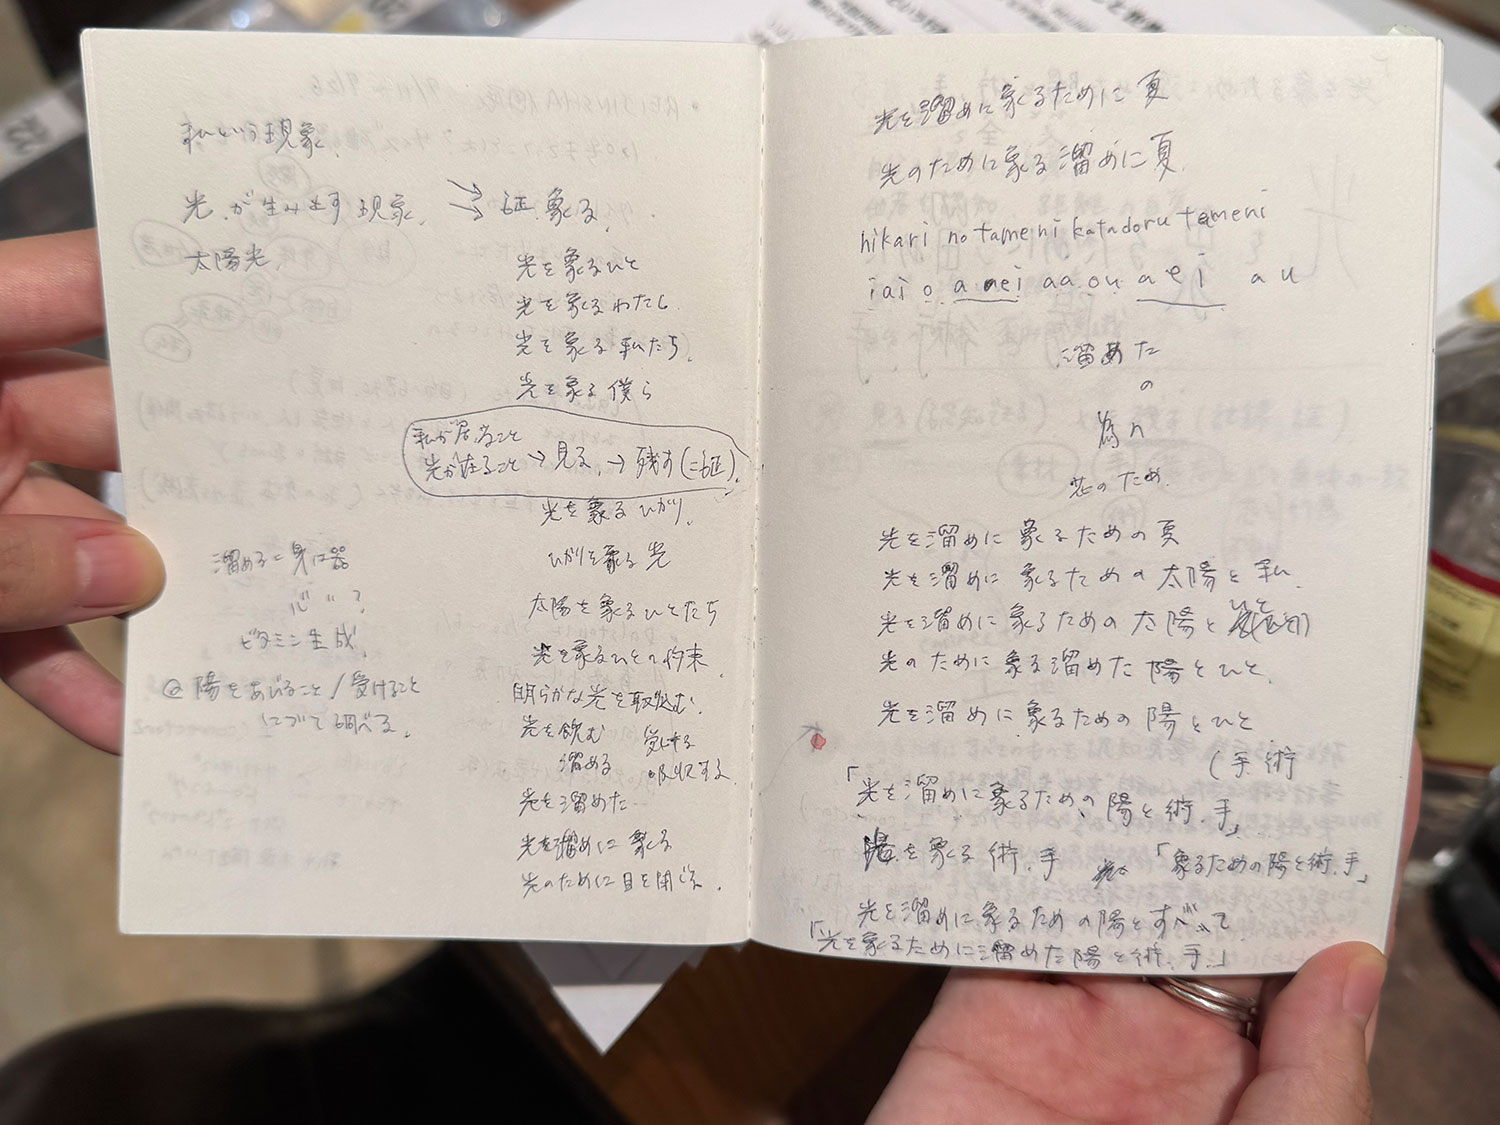 私という現象、
光が生み出す現象、 → 証、象る、
太陽光、
光を象るひと
光を象るわたし
光を象る私たち、
光を象る僕ら
私が居ること
光が在ること → 見る、→ 残す(=証)、
光を象るひかり、
ひかりを象る光
太陽を象るひとたち
光を象るひとの約束
明らかな光を取込む、
光を飲む
溜める 吸収する
光を溜めた
光を溜めに象る
光のために目を閉じる、
溜める=身は器
心〃?
ビタミン生成、
@陽をあびること/受けること
について調べる、
光を溜めに象るために夏
光のために象る溜めに夏、
hikari no tameni katadoru tameni
iai o a aei aaou aei au
溜めた
の
為に
芯のため、
光を溜めに象るための夏
光を溜めに象るための太陽と私、
光を溜めに象るための太陽とひと
光のために象る溜めた陽とひと、
光を溜めに象るための陽とひと
(手、術
「光を溜めに象るための、陽と術、手」
陽を象る術、手 「象るための陽と術、手」
光を溜めに象るための陽とすべて
「光を象るために溜めた陽と術、手、」